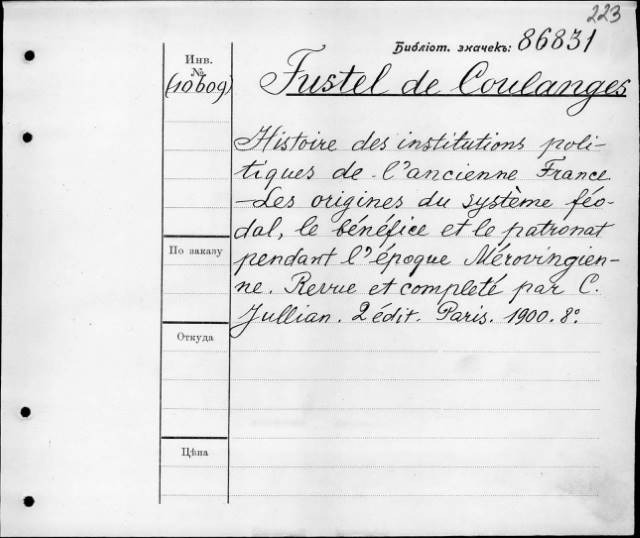 223
Библіот. значекъ: 86831
Инв.
№
(10609)
Fustel de Coulanges
Histoire des institutions poli-
tiques de l'ancienne France
-Les origines du système féo-
dal, le bénéfice et le patronat
pendant l'époque Mérovingien-
ne. Revue et completé par C.
Jullian. 2 édit. Paris. 1900. 8°.
По заказу
Откуда
Цѣна